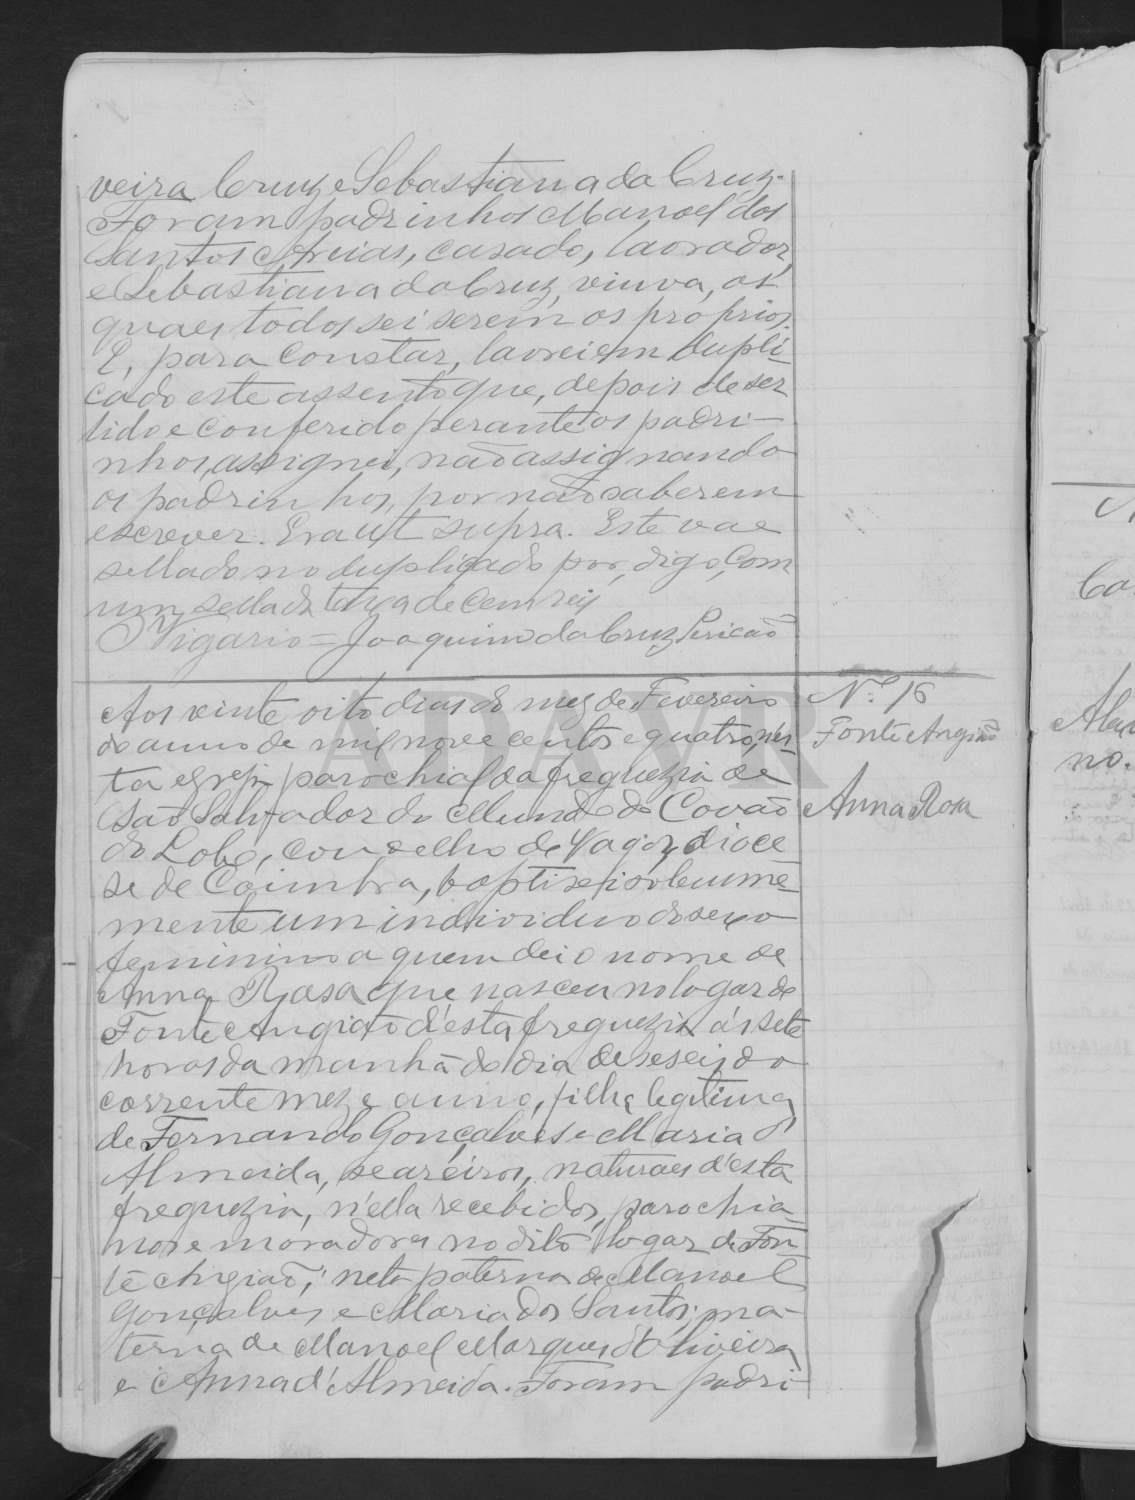 veira Cruz e Sebastiana da Cruz.
Foram padrinhos Manoel dos
Santos Areias, casado, lavrador,
e Sebastiana da Cruz, viuva, os
quaes todos sei serem os proprios.
E, para constar, lavrei em dupli-
cado este assento que, depois de ser
lido e conferido perante os padri-
nhos, assignei, não assignando
os padrinhos, por não saberem
escrever. Era ut supra. Este vae
sellado no duplicado por, digo, com
um sello da taxa de cem reis
O Vigario = Joaquim da Cruz Pericão
Nº 16
Fonte Angião
Anna Rosa
Aos vinte oito dias do mez de Fevereiro
do anno de mil nove centos e quatro, n'es-
ta egreja parochial da freguezia de
São Salvador do Mundo do Covão
do Lobo, conselho de Vagos, dioce
se de Coimbra, baptisei solemne-
mente um individuo do sexo
feminino a quem dei o nome de
Anna Rosa que nasceu no logar de
Fonte Angião d'esta freguezia ás sete
horas da manhã do dia deseseis do
corrente mez e anno, filha legitima
de Fernando Gonçalves e Maria d'
Almeida, seareiros, naturaes d'esta
freguezia, n'ella recebidos, parochia-
nos e moradores no dito logar de Fon-
te Angião; neta paterna de Manoel
Gonçalves e Maria dos Santos; ma-
terna de Manoel Marques d'Oliveira
e Anna d'Almeida. Foram padri-
ADAVR